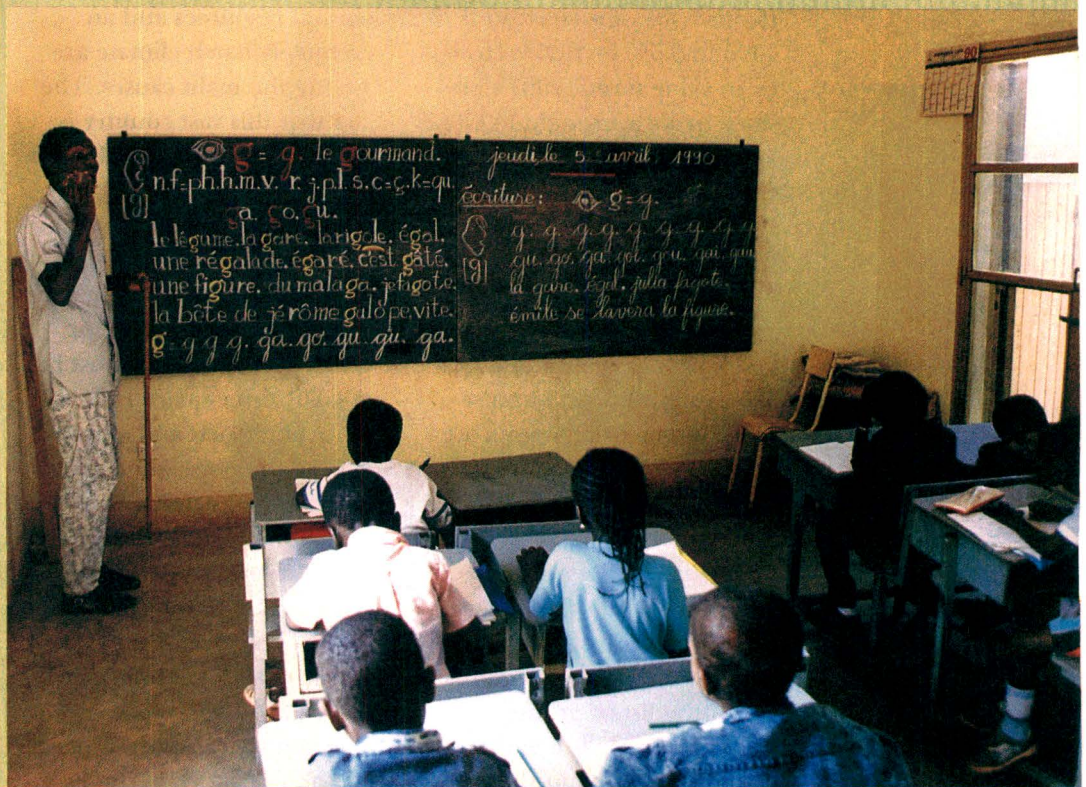 g = g. le gourmand.
n.f=ph.h.m.v. r. j.p.l. s.c=ç.k=qu.
[g] ga. go. gu.
le légume. la gare. la rigole. égal.
une régalade. égaré. c'est gâté.
une figure. du malaga. je fagote.
la bête de jérôme galope. vite.
g = g g g. ga. go. gu. gu. ga.
jeudi le 5 avril 1990
écriture: g = g.
g. g. g. g. g. g. g. g. g
[g] gu. go. ga. gol. gou. gai. gau
la gare. égal. julia fagote.
émile se lavera la figure.
90